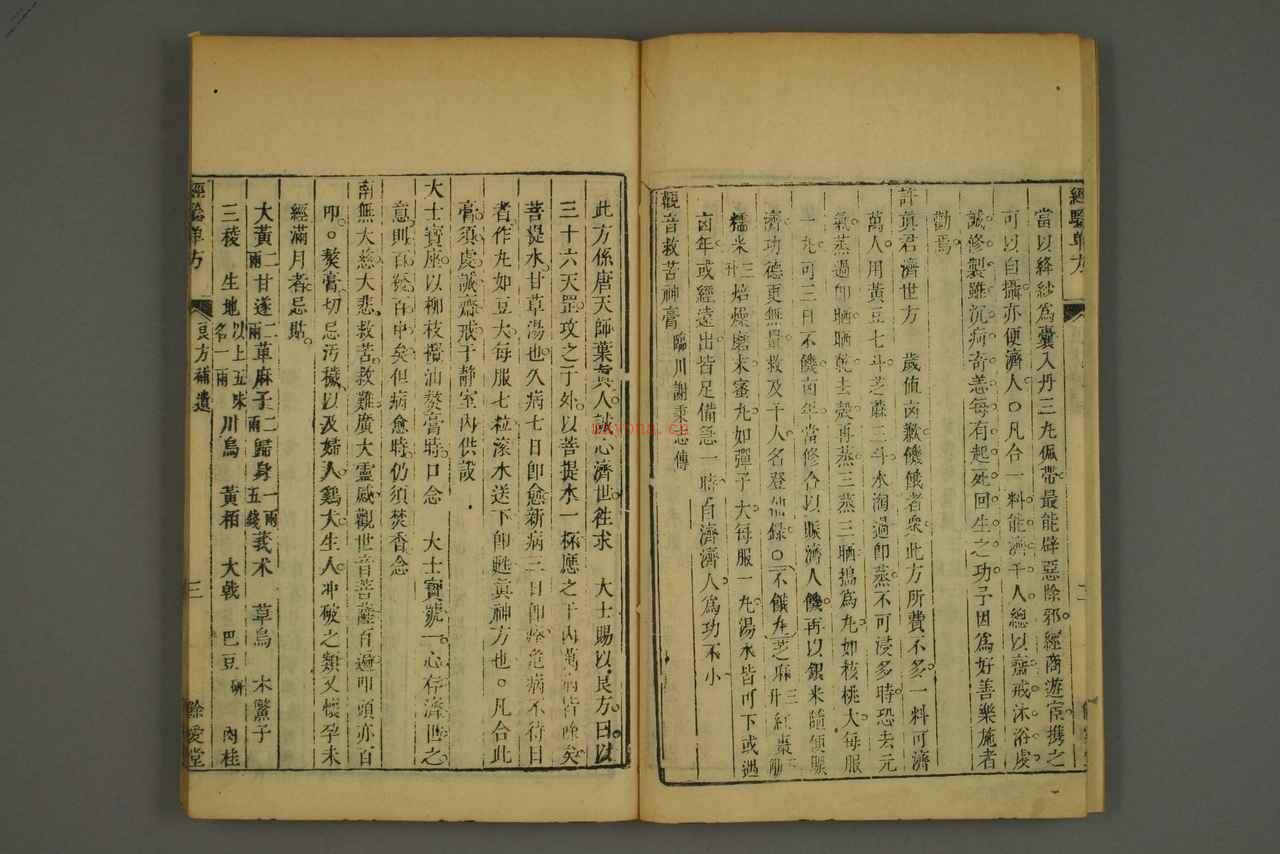 經驗單方
當以絳紗為囊入丹三丸佩帶最能辟惡除邪經商遊宦攜之
可以自攝亦便濟人〇凡合一料能濟千人總以齋戒沐浴虔
誠修製雖沉疴奇恙每有起死回生之功予因為好善樂施者
勸焉
許眞君濟世方 歲值㐫歉饑餓者衆此方所費不多一料可濟
萬人用黃豆七斗芝蔴三斗水淘過卽蒸不可浸多時恐去元
氣蒸過卽晒晒乾去殼再蒸三蒸三晒搗為丸如核桃大每服
一丸可三日不饑㐫年當修合以賑濟人饑再以銀米隨便賑
濟功德更無量救及千人名登仙錄〇不饑丸芝麻三升紅棗
糯米三升焙燥磨末蜜丸如彈子大每服一丸湯水皆可下或遇
㐫年或經遠出皆足備急一時自濟濟人為功不小
觀音救苦神膏 臨川謝秉忠傳
此方係唐天師葉眞人誠心濟世往求 大士賜以良方曰以
三十六天罡攻之于外以菩提水一杯應之于內萬病皆除矣
菩提水甘草湯也久病七日卽愈新病三日卽痊危病不待日
者作丸如豆大每服七粒滾水送下卽甦眞神方也〇凡合此
膏須虔誠齋戒于靜室內供設
大士寶座以柳枝攪油熬膏時口念 大士寳號一心存濟世之
意則百發百中矣但病愈時仍須焚香念
南無大慈大悲救苦救難廣大靈感觀世音菩薩百遍叩頭亦百
叩〇熬膏切忌污穢以及婦人鷄犬生人冲破之類又懷孕未
經滿月者忌貼
大黃二兩 甘遂二兩 萆麻子二兩 歸身一兩五錢 莪术 草烏 木鱉子
三稜 生地以上五味名一兩 川烏 黃栢 大戟 巴豆研 肉桂
經驗單方 良方補遺 三 餘愛堂